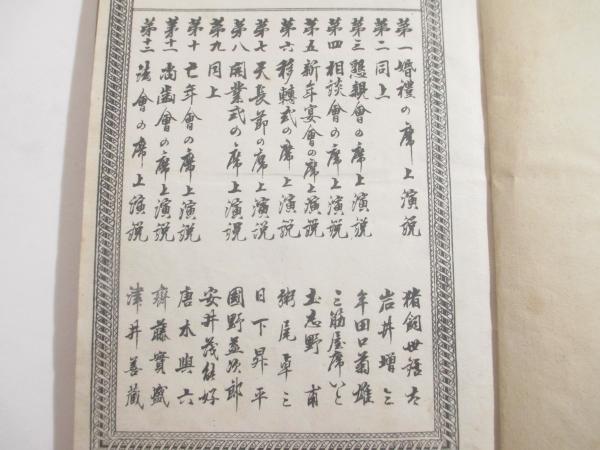 第一 婚禮の席上演説 猪飼世話太
第二 同上 岩井増三
第三 懇親會の席上演説 牟田口菊雄
第四 相談會の席上演説 三筋屋席いと
第五 新年宴會の席上演説 志野甫
第六 移轉式の席上演説 粥尾卓三
第七 天長節の席上演説 日下昇平
第八 開業式の席上演説 國野益次郎
第九 同上 安井茂能好
第十 亡年會の席上演説 唐木與六
第十一 尚齒會の席上演説 齊藤實盛
第十二 法會の席上演説 津井善藏